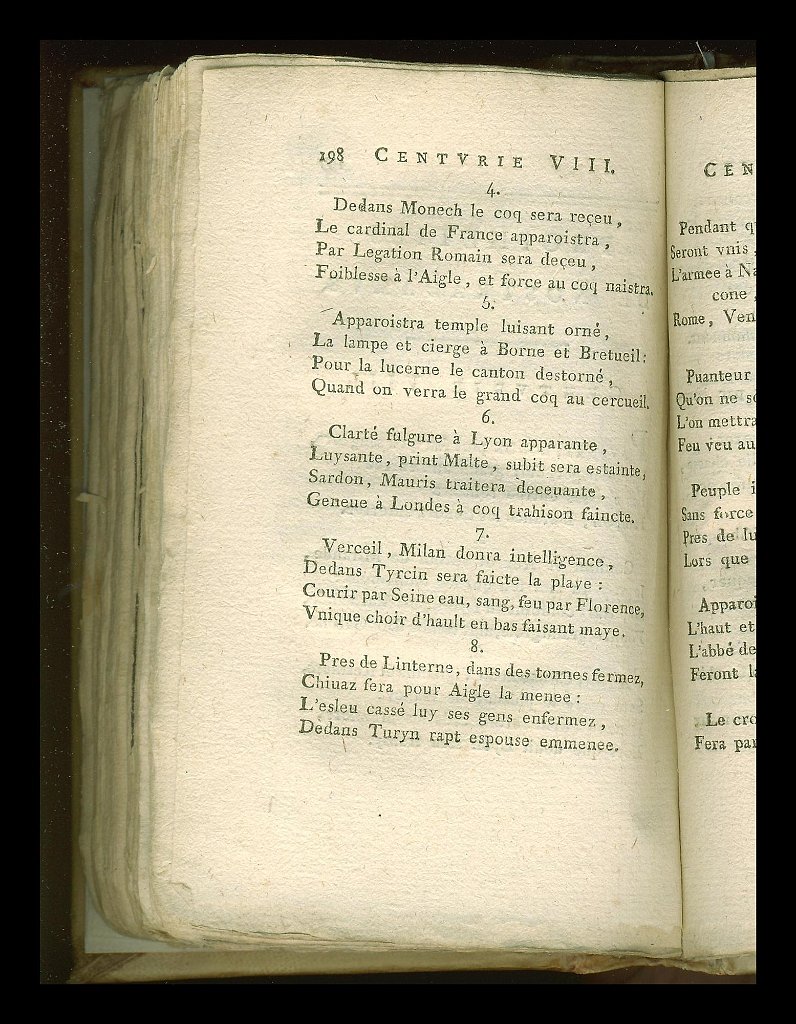 198 CENTVRIE VIII.
4.
Dedans Monech le coq sera reçeu,
Le cardinal de France apparoistra,
Par Legation Romain sera deçeu,
Foiblesse à l'Aigle, et force au coq naistra.
5.
Apparoistra temple luisant orné,
La lampe et cierge à Borne et Bretueil:
Pour la lucerne le canton destorné,
Quand on verra le grand coq au cercueil.
6.
Clarté fulgure à Lyon apparante,
Luysante, print Malte, subit sera estainte,
Sardon, Mauris traitera deceuante,
Geneue à Londes à coq trahison faincte.
7.
Verceil, Milan donra intelligence,
Dedans Tyrcin sera faicte la playe:
Courir par Seine eau, sang, feu par Florence,
Vnique choir d'hault en bas faisant maye.
8.
Pres de Linterne, dans des tonnes fermez,
Chiuaz fera pour Aigle la menee:
L'esleu cassé luy ses gens enfermez,
Dedans Turyn rapt espouse emmenee.
CEN
Pendant q
Seront vnis,
L'armee à Na
cone,
Rome, Ven
Puanteur
Qu'on ne so
L'on mettra
Feu veu au
Peuple i
Sans force
Pres de lu
Lors que
Apparoi
L'haut et
L'abbé de
Feront la
Le cro
Fera par